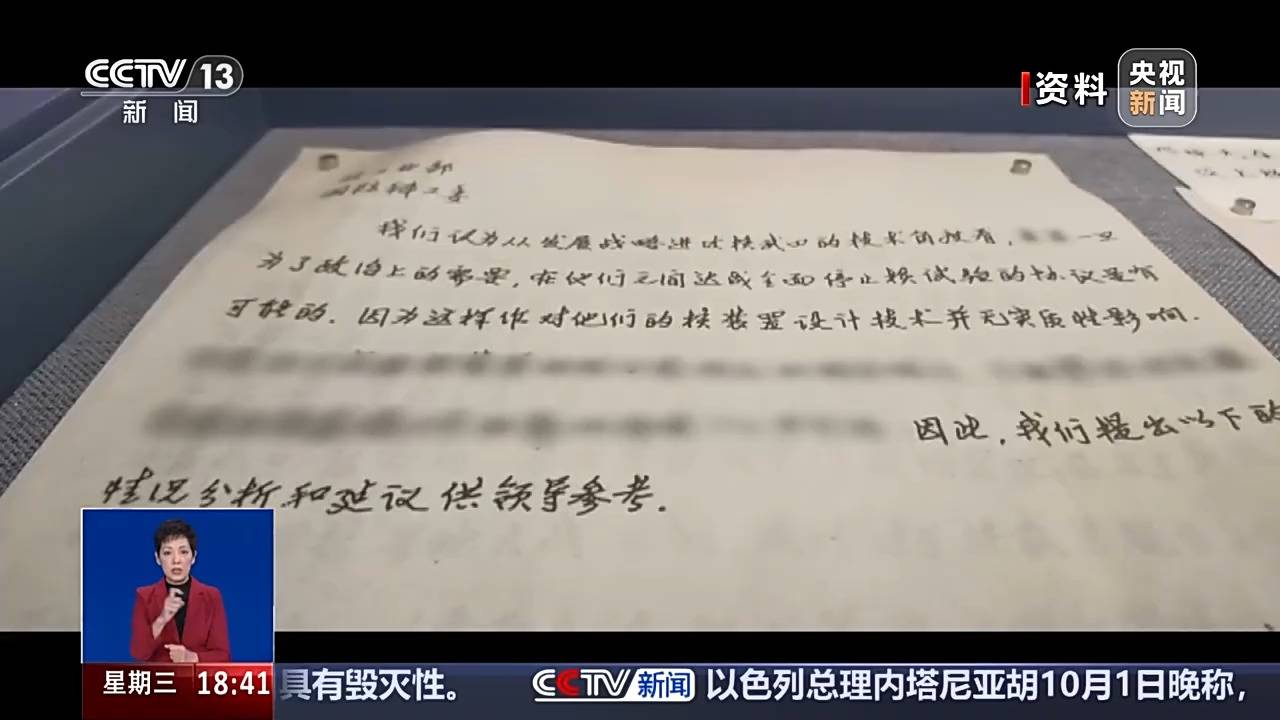 CCTV 13
新闻
资料
央视
新闻
业部
我们认为从发展战略进攻核武四的技术角度看,
一旦
为了政治上的需要,在他们之间达成全面停止核试验的协议是有
可能的.因为这样作对他们的核装置设计技术并无实质性影响.
因此,我们提出以下的
情况分析和建议供领导参考.
星期三 18:41 具有毁灭性。 CCTV 新闻 以色列总理内塔尼亚胡10月1日晚称,